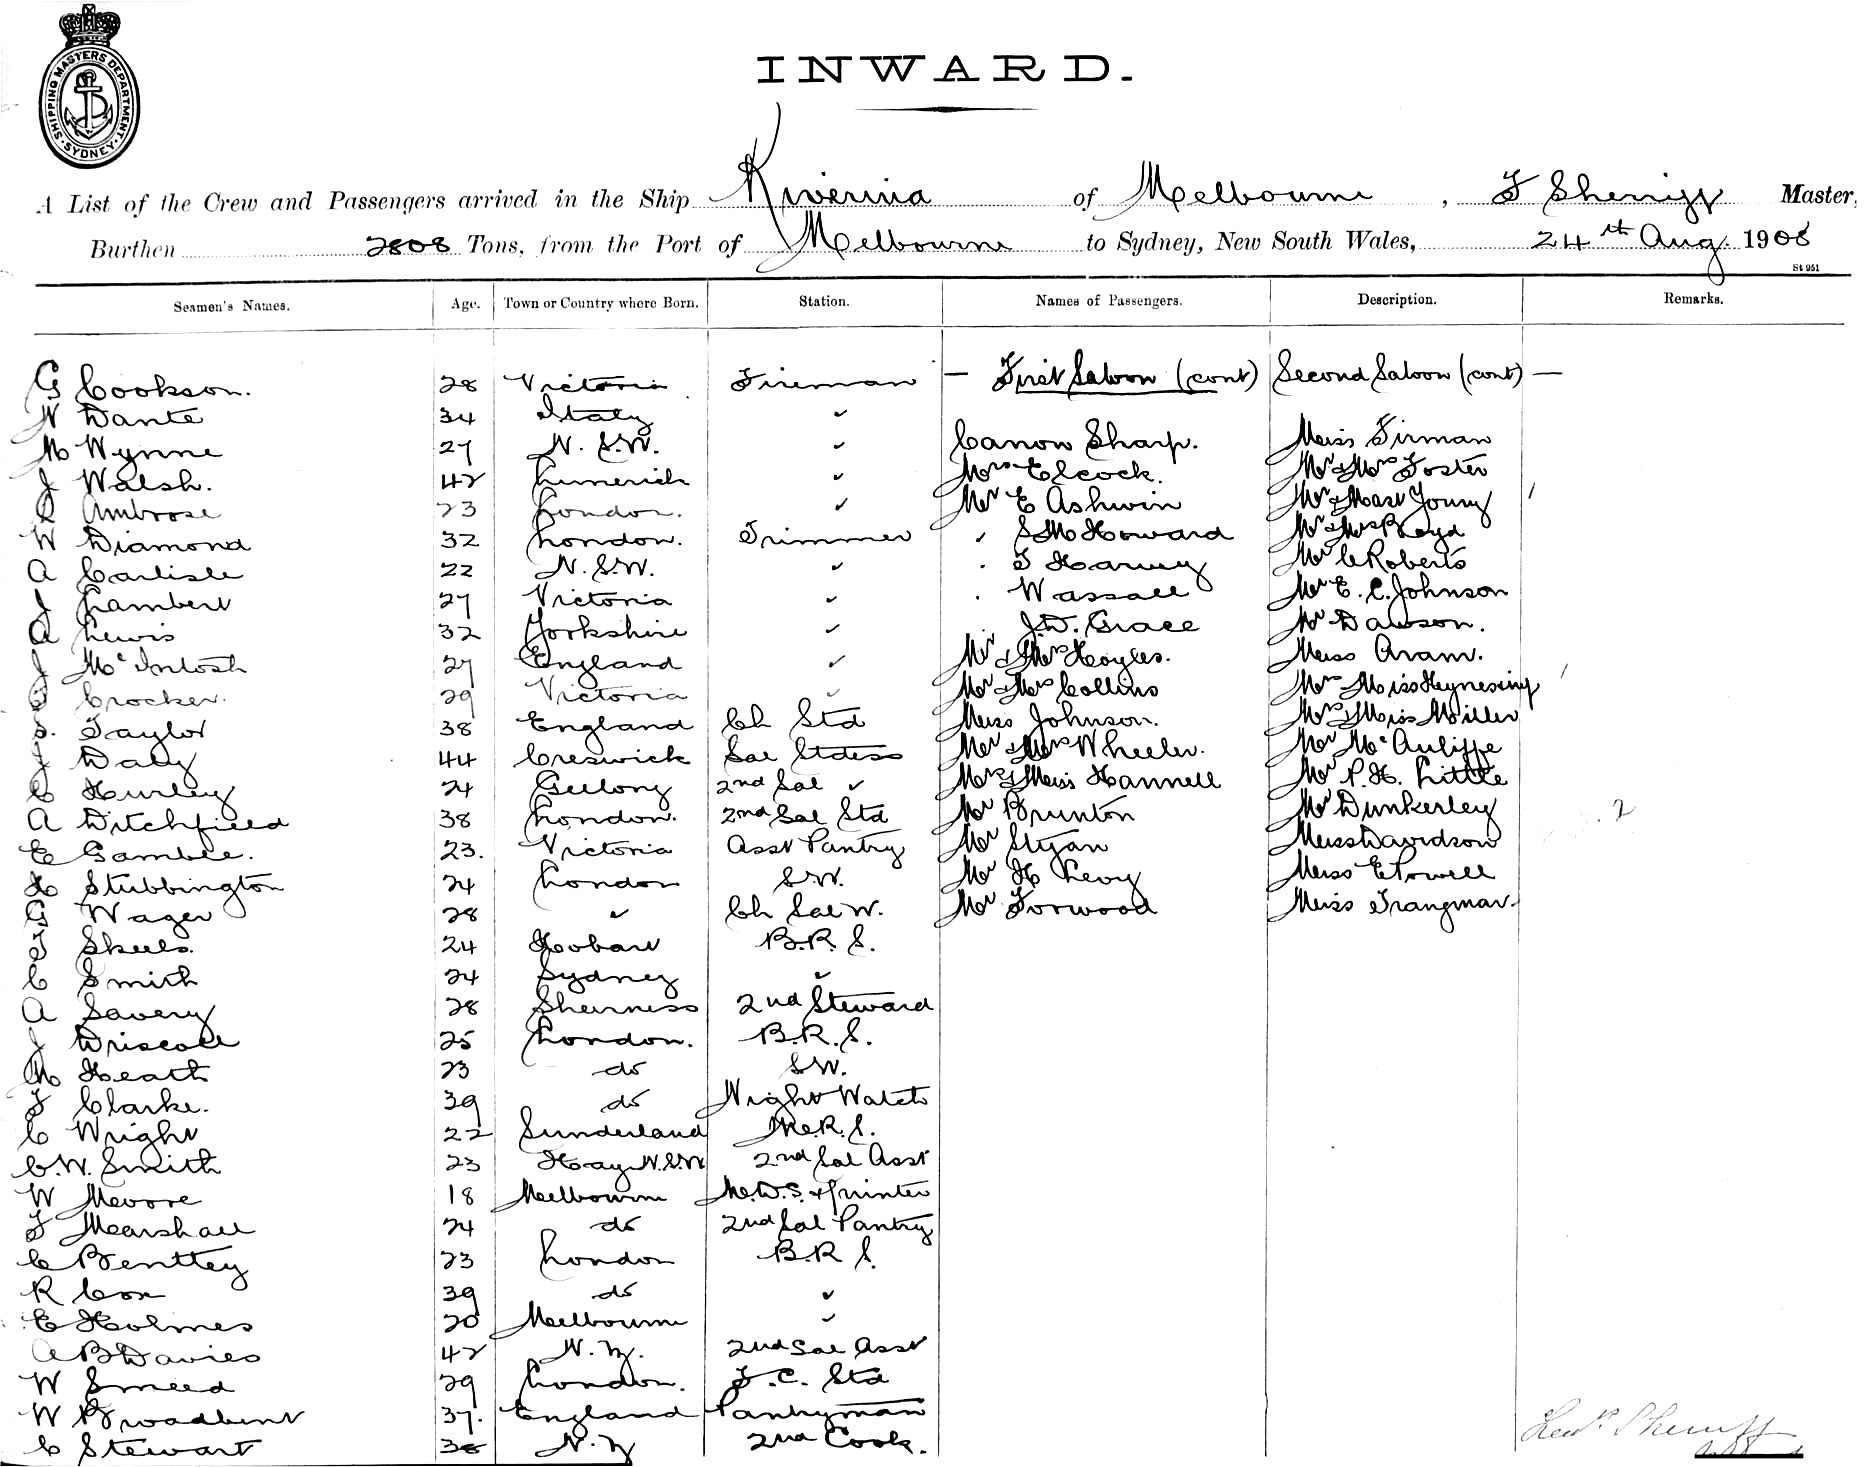 SHIPPING MASTERS DEPARTMENT
SYDNEY
INWARD.
A List of the Crew and Passengers arrived in the Ship Riverina of Melbourne, F Sherriff Master,
Burthen 2808 Tons, from the Port of Melbourne to Sydney, New South Wales, 24th Aug. 1908
St 951
Seamen's Names. Age. Town or Country where Born. Station. Names of Passengers. Description. Remarks.
G Cookson. 28 Victoria Fireman — First Saloon (cont) Second Saloon (cont) —
N Dante 34 Italy ✓
M Wynne 27 N.S.W. ✓ Canon Sharp. Miss Firman
J Walsh. 42 Limerick ✓ Mrs Elcock. Mr & Mrs Foster
R Ambrose 23 London. ✓ Mr E Ashwin Mr & Mast Young
W Diamond 32 London. Trimmer S M Howard Mr & Mrs Boyd
A Carlisle 22 N.S.W. ✓ T Harvey Mr C Roberts
J Lambert 27 Victoria ✓ Wassall Mr E. C. Johnson
A Lewis 32 Yorkshire ✓ J.W. Grace Mr Dawson.
J McIntosh 27 England ✓ Mr & Mrs Hoyles. Miss Aram.
Crocker. 29 Victoria ✓ Mr & Mrs Collins Mrs Miss
S. Taylor 38 England Ch Std Miss Johnson. Mrs & Miss Miller
J Daly 44 Creswick Sal Stdess Mr & Mrs Wheeler. Mr McAuliffe
C Hurley 24 Geelong 2nd Sal ✓ Mrs & Miss Hannell Mr P. H. Little
A Ditchfield 38 London. 2nd Sal Std Mr Brunton Mr Dunkerley
E Gamble. 23. Victoria Asst Pantry Mr Styan Miss Davidson
H Stubbington 24 London S.W. Mr H Levy Miss E Powell
G Wager 28 ✓ Ch Sal W. Mr Forwood Miss Trangmar.
T Skeels. 24 Hobart B.R.S.
C Smith 24 Sydney ✓
A Savery 28 Sheerness 2nd Steward
J Driscoll 25 London. B.R.S.
M Heath 23 do S.W.
F Clarke. 39 do Night Watch
C Wright 22 Sunderland M.R.S.
C.W. Smith 23 Hay N.S.W 2nd Sal Asst
W Moore 18 Melbourne M.D.S. & Printer
F Marshall 24 do 2nd Sal Pantry
C Benttey 23 London B.R.S.
R Cox 39 do ✓
E Holmes 20 Melbourne ✓
A B Davies 42 N.Z. 2nd Sal Asst
W Smeed 29 London. F.C. Std
W Broadbent 37. England Pantryman
C Stewart 38 N.Z 2nd Cook.
Sherriff